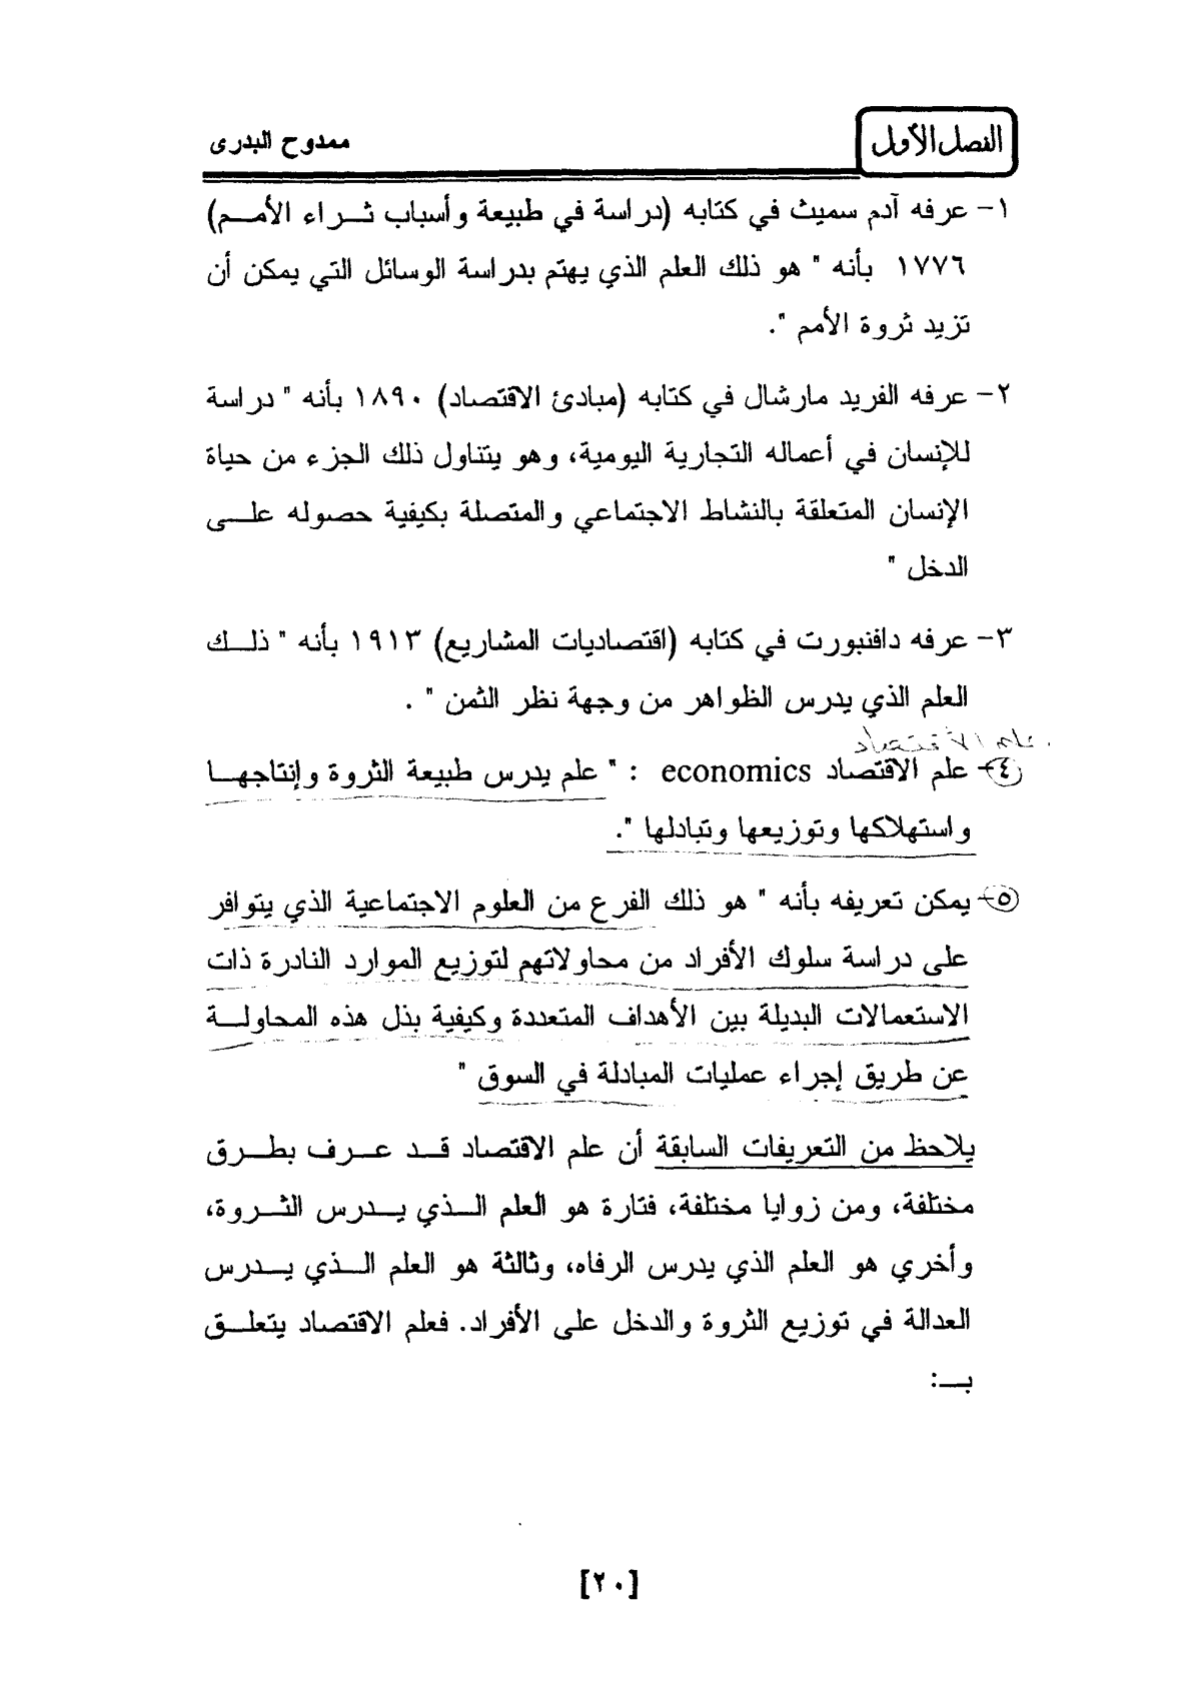 الفصل الأول
ممدوح البدرى
١- عرفه آدم سميث في كتابه (دراسة في طبيعة وأسباب ثـــراء الأمـــم)
١٧٧٦ بأنه " هو ذلك العلم الذي يهتم بدراسة الوسائل التي يمكن أن
تزيد ثروة الأمم ".
٢- عرفه الفريد مارشال في كتابه (مبادئ الاقتصاد) ١٨٩٠ بأنه " دراسة
للإنسان في أعماله التجارية اليومية، وهو يتناول ذلك الجزء من حياة
الإنسان المتعلقة بالنشاط الاجتماعي والمتصلة بكيفية حصوله علـــى
الدخل "
٣- عرفه دافنبورت في كتابه (اقتصاديات المشاريع) ١٩١٣ بأنه " ذلـــك
العلم الذي يدرس الظواهر من وجهة نظر الثمن " .
علم الاقتصاد
٤- علم الاقتصاد economics : " علم يدرس طبيعة الثروة وإنتاجهـــا
واستهلاكها وتوزيعها وتبادلها ".
٥- يمكن تعريفه بأنه " هو ذلك الفرع من العلوم الاجتماعية الذي يتوافر
على دراسة سلوك الأفراد من محاولاتهم لتوزيع الموارد النادرة ذات
الاستعمالات البديلة بين الأهداف المتعددة وكيفية بذل هذه المحاولـــة
عن طريق إجراء عمليات المبادلة في السوق "
يلاحظ من التعريفات السابقة أن علم الاقتصاد قـــد عـــرف بطـــرق
مختلفة، ومن زوايا مختلفة، فتارة هو العلم الـــذي يـــدرس الثـــروة،
وأخري هو العلم الذي يدرس الرفاه، وثالثة هو العلم الـــذي يـــدرس
العدالة في توزيع الثروة والدخل على الأفراد. فعلم الاقتصاد يتعلـــق
بـــ:
[٢٠]